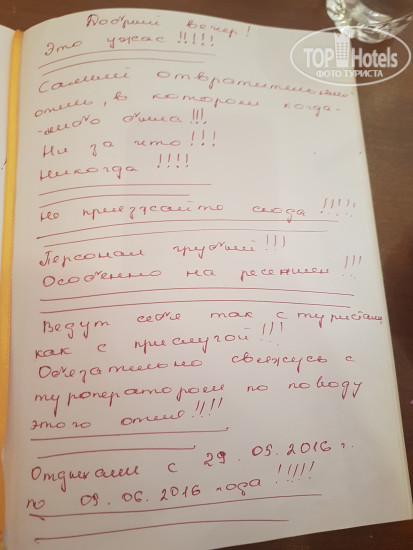 Добрий вечер!
Это ужас !!!!!
TOP Hotels
ФОТО ТУРИСТА
Самий отвратительний
отель, в котором когда-
-либо била !!!
Ни за что !!!
Никогда !!!!
Не приезжайте сюда !!!!!
Персонал грубий !!!
Особенно на ресепшен !!!
Ведут себя так с туристами
как с прислугой !!!
Обезательно свяжусь с
туроператором по поводу
этого отеля !!!!
Отдыхали с 29.05.2016 г.
по 09.06.2016 года !!!!!